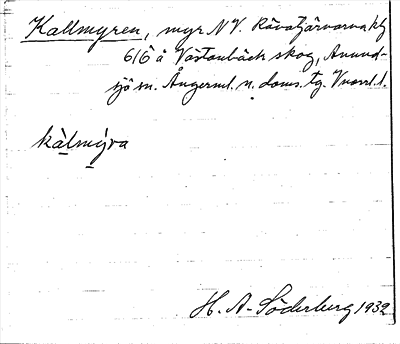 Kallmyren, myr NV. Rävatjärnarna kbl
616 å Västanbäck skog, Anund-
sjö sn. Ångerml. n. doms. tg. Vnorrl. l.
kàlmýra
H. A. Söderberg 1932